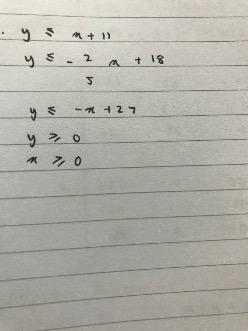 . y ≤ x + 11
y ≤ - 2/5 x + 18
y ≤ -x + 27
y ≥ 0
x ≥ 0